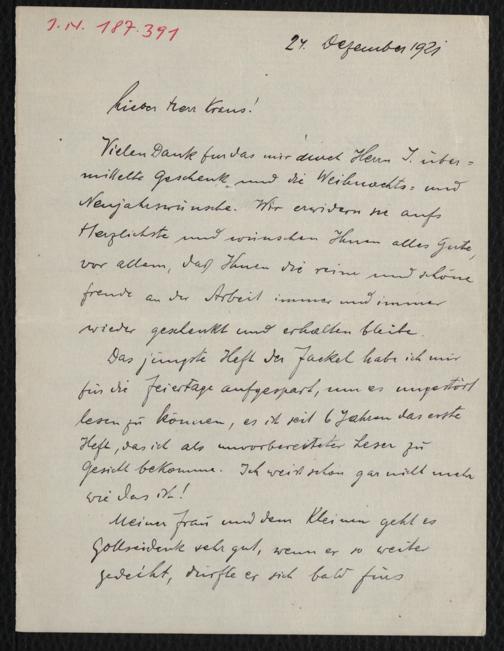 I.N. 187.391
24. Dezember 1921
Lieber Herr Kraus!
Vielen Dank für das mir durch Herrn J. über=
mittelte Geschenk und die Weihnachts= und
Neujahrswünsche. Wir erwidern sie aufs
Herzlichste und wünschen Ihnen alles Gute,
vor allem, daß Ihnen die reine und schöne
Freude an der Arbeit immer und immer
wieder geschenkt und erhalten bleibe.
Das jüngste Heft der Fackel habe ich mir
für die Feiertage aufgespart, um es ungestört
lesen zu können, es ist seit 6 Jahren das erste
Heft, das ich als unvorbereiteter Leser zu
Gesicht bekomme. Ich weiß schon gar nicht mehr
wie das ist!
Meiner Frau und dem Kleinen geht es
Gottseidank sehr gut, wenn er so weiter
gedeiht, dürfte er sich bald fürs